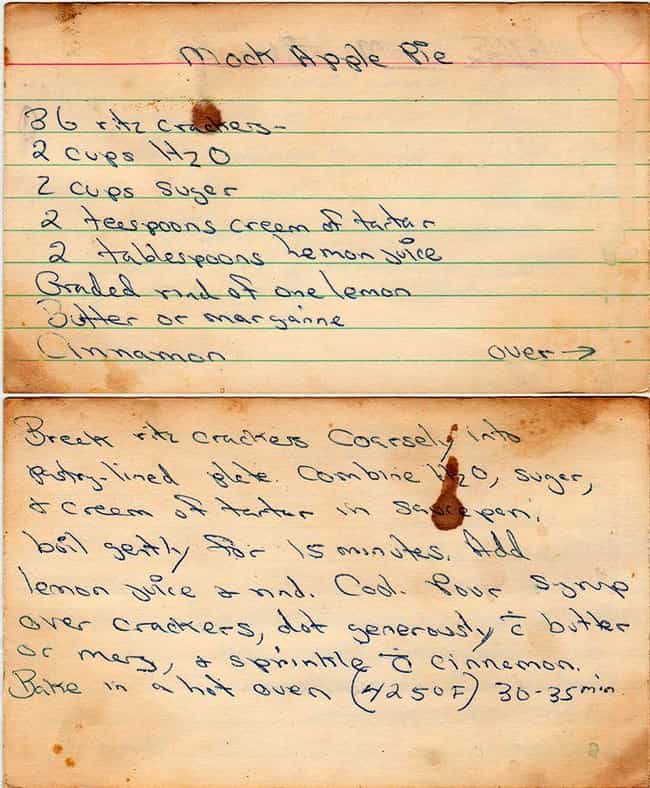 Mock Apple Pie
36 ritz crackers-
2 cups H2O
2 cups suger
2 teespoons creem of tartar
2 tablespoons lemon juice
Graded rind of one lemon
Butter or margarine
Cinnamon over →
Breek ritz crackers Coarsely into
pastry-lined plete. Combine H2O, suger,
& creem of tartar in saucepan,
boil gently for 15 minutes. Add
lemon juice & rind. Cool. Pour Syrup
over crackers, dot generously c̄ butter
or marg, & sprinkle c̄ cinnamon.
Bake in a hot oven (425°F) 30-35 min.